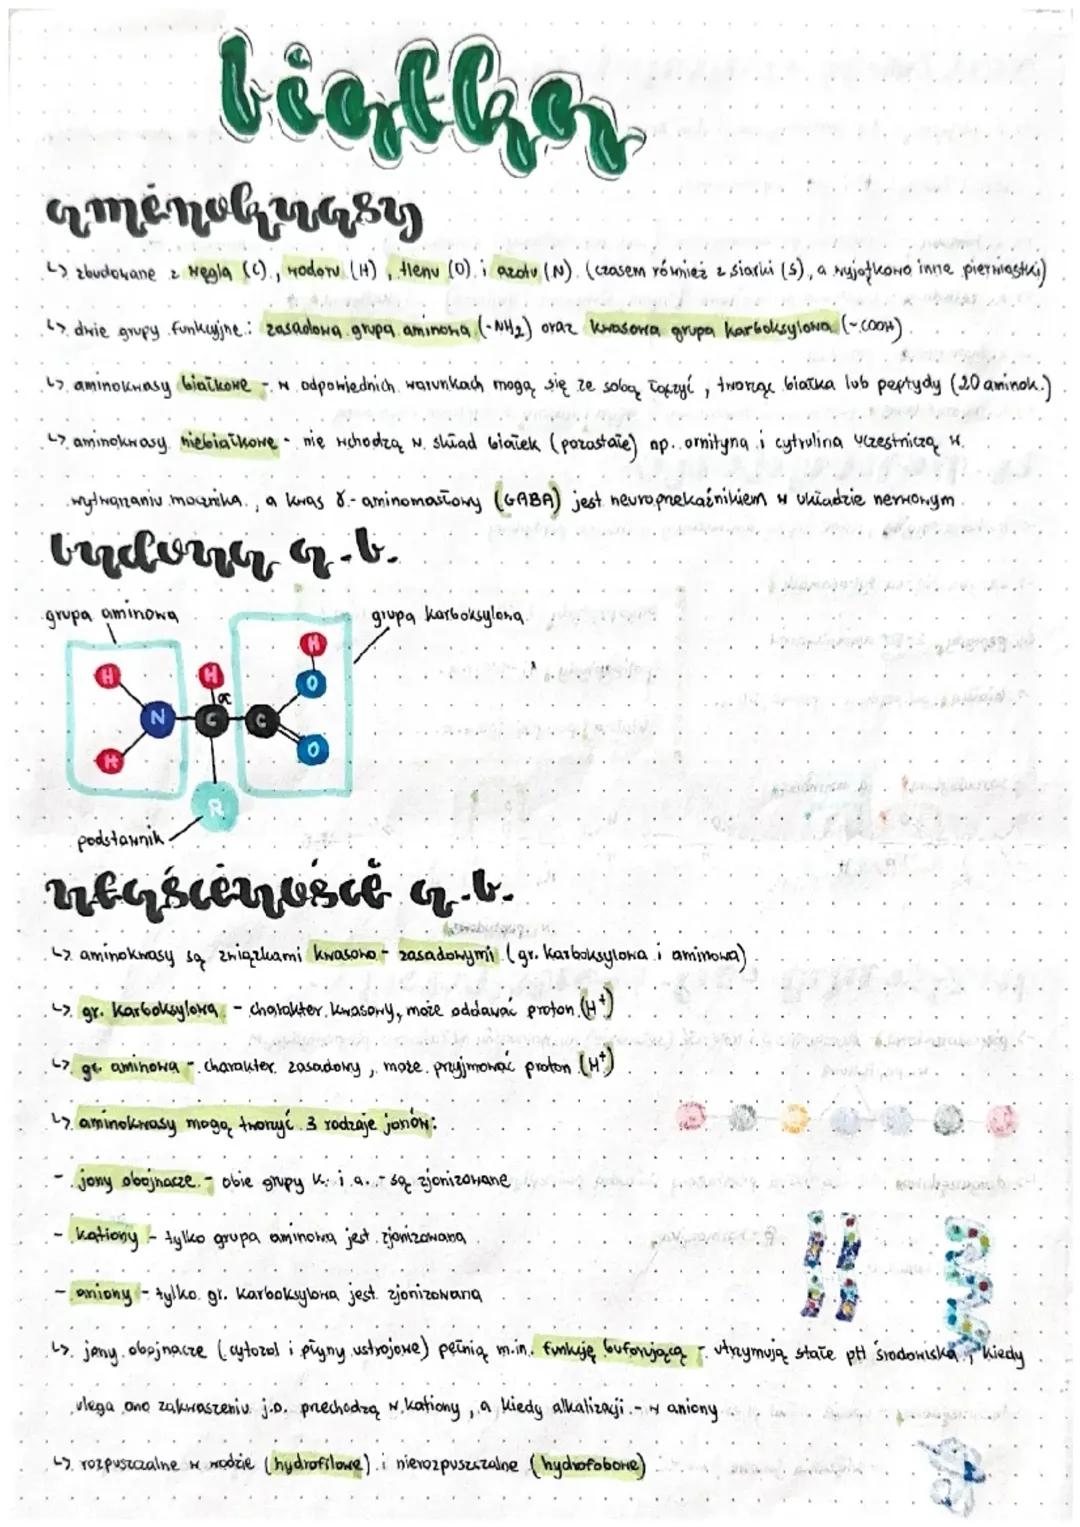 białka
aminokwasy
↳ zbudowane z węgla (C), wodoru (H), tlenu (O) i azotu (N) (czasem również z siarki (S), a wyjątkowo inne pierwiastki)
↳ dwie grupy funkcyjne: zasadowa grupa aminowa (-NH2) oraz kwasowa grupa karboksylowa (-COOH)
↳ aminokwasy białkowe - w odpowiednich warunkach mogą się ze sobą łączyć, tworząc białka lub peptydy (20 aminok.)
↳ aminokwasy niebiałkowe - nie wchodzą w skład białek (pozostałe) np. ornityna i cytrulina uczestniczą w
wytwarzaniu mocznika, a kwas γ-aminomasłowy (GABA) jest neuroprzekaźnikiem w układzie nerwowym
budowa a.b.
grupa aminowa
grupa karboksylowa
H
H
H
α
O
N
C
C
H
O
R
podstawnik
właściwości a.b.
↳ aminokwasy są związkami kwasowo-zasadowymi (gr. karboksylowa i aminowa)
↳ gr. karboksylowa - charakter kwasowy, może oddawać proton (H+)
↳ gr. aminowa - charakter zasadowy, może przyjmować proton (H+)
↳ aminokwasy mogą tworzyć 3 rodzaje jonów:
- jony obojnacze - obie grupy k. i a. - są zjonizowane
- kationy - tylko grupa aminowa jest zjonizowana
- aniony - tylko gr. karboksylowa jest zjonizowana
↳ jony obojnacze (cytozol i płyny ustrojowe) pełnią m.in. funkcję buforującą - utrzymują stałe pH środowiska, kiedy
ulega ono zakwaszeniu j.o. przechodzą w kationy, a kiedy alkalizacji - w aniony
↳ rozpuszczalne w wodzie (hydrofilowe) i nierozpuszczalne (hydrofobowe)